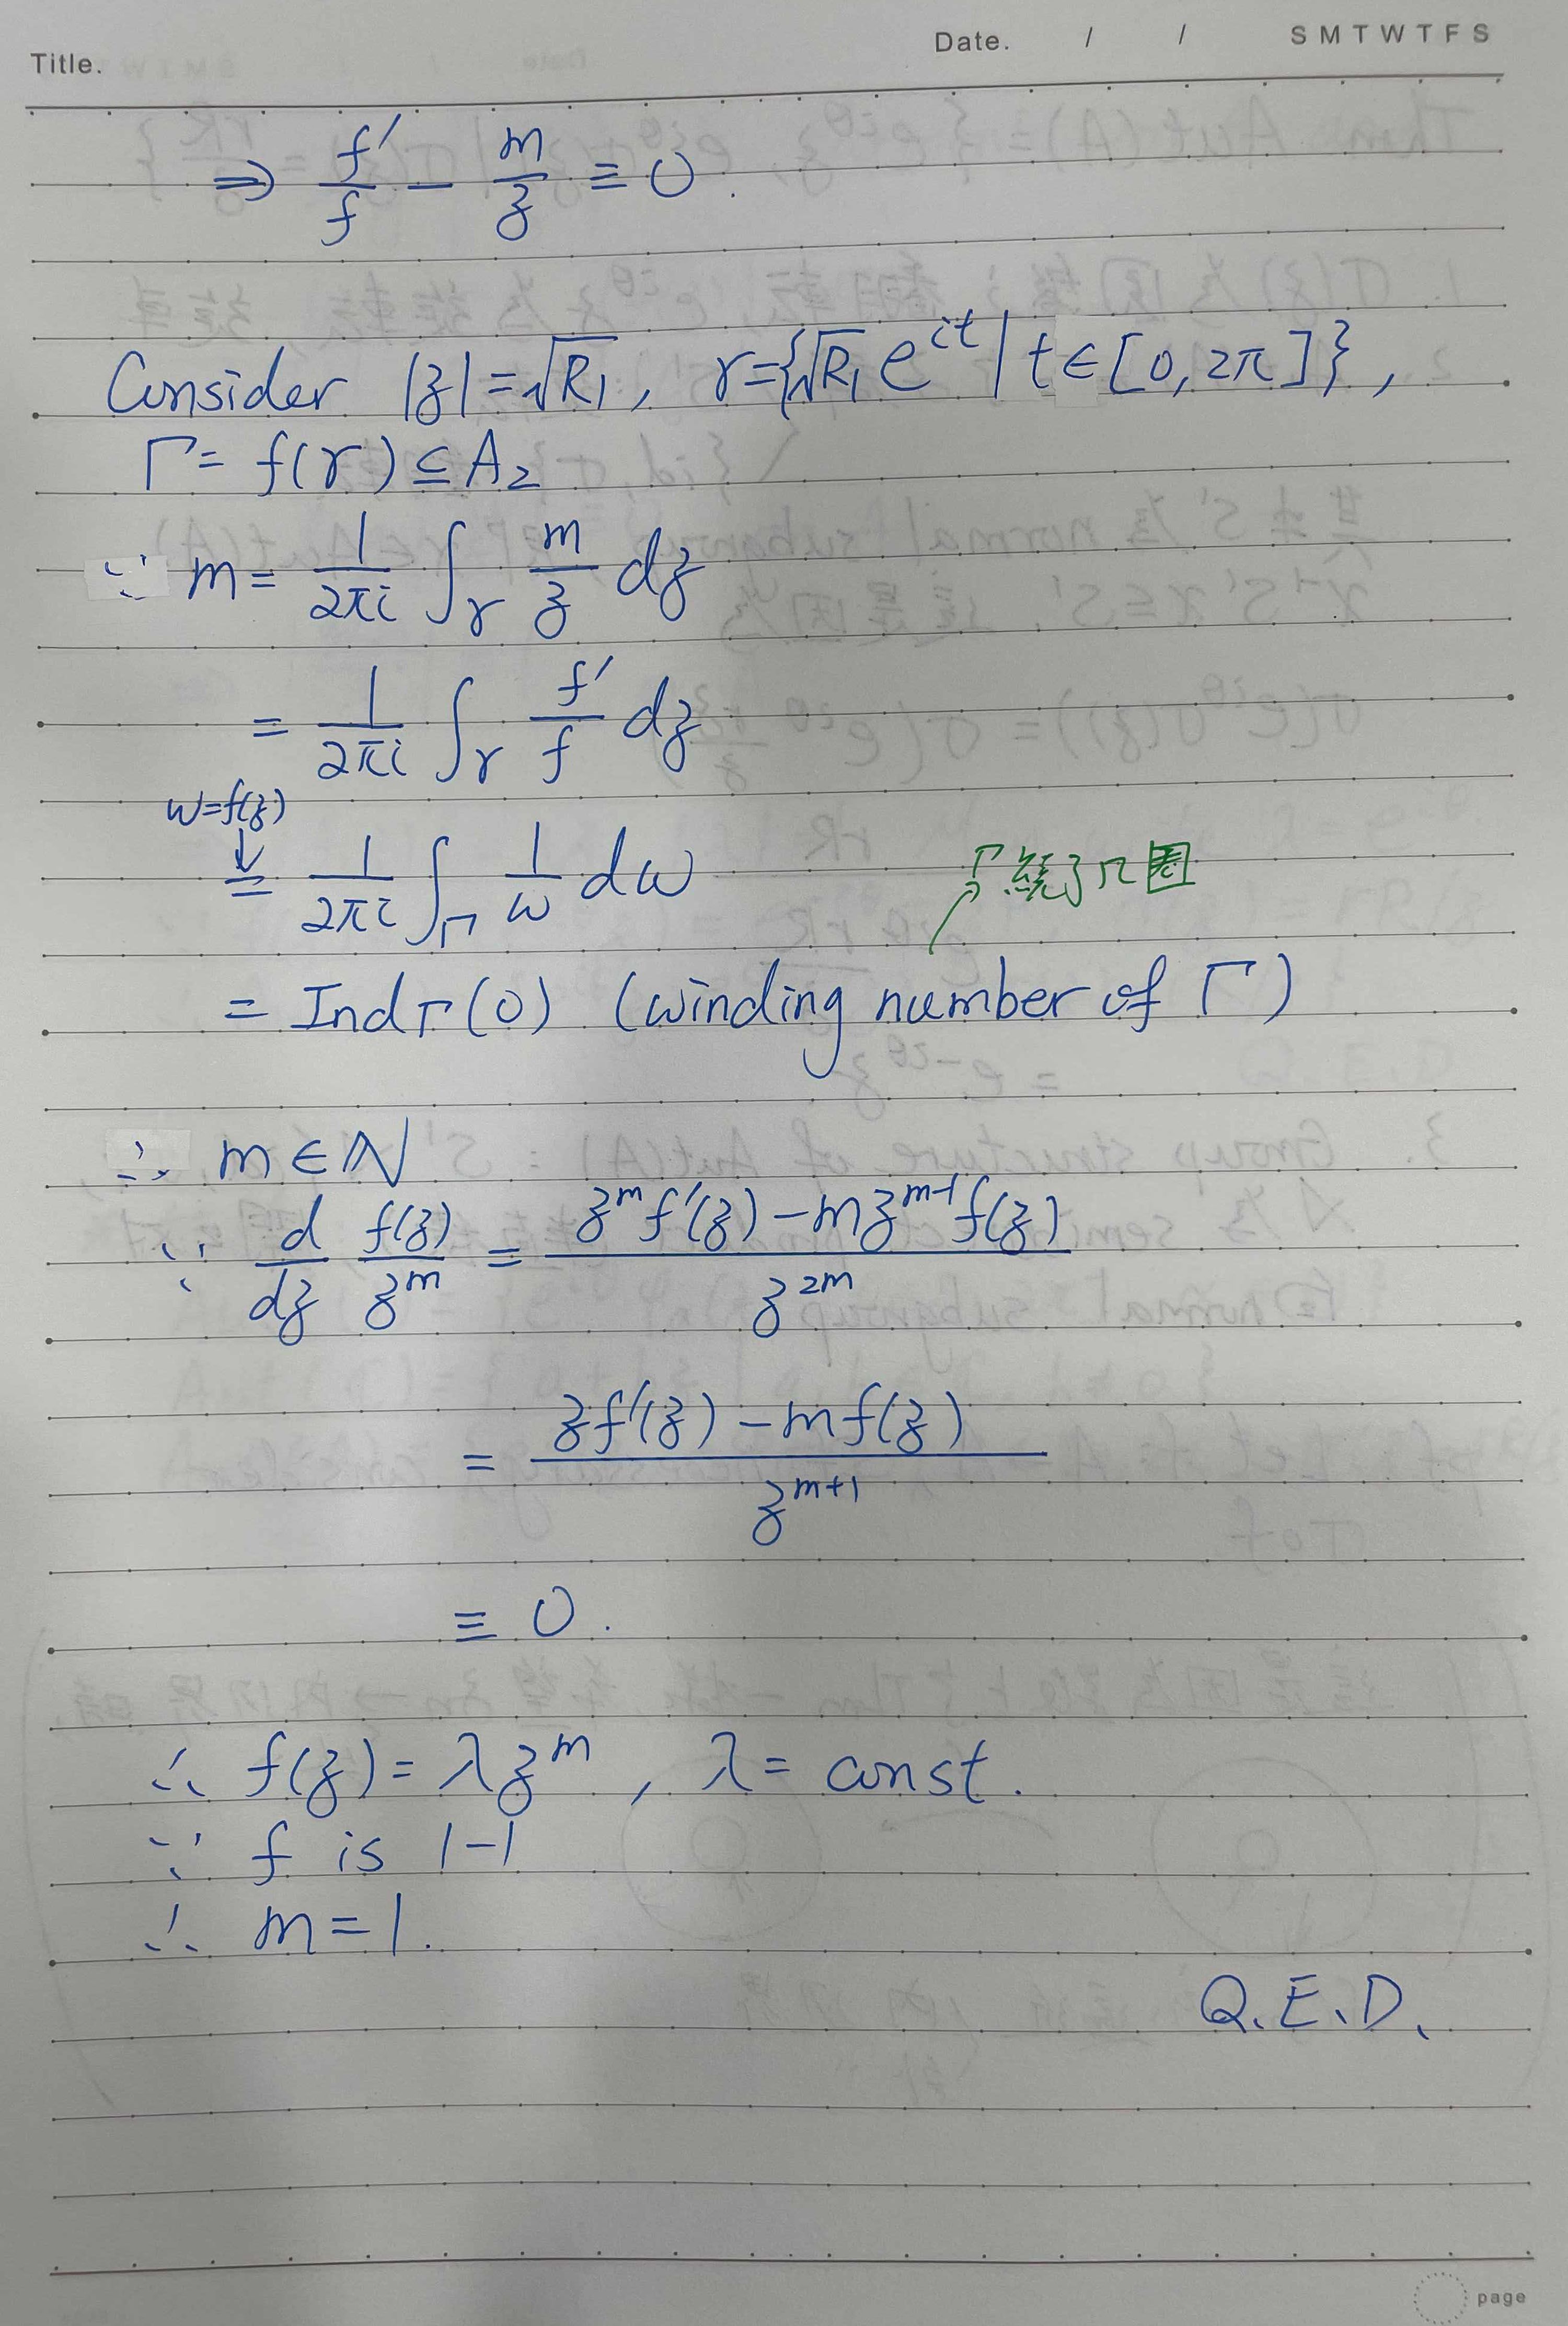 Title.
Date. / / S M T W T F S
⇒ f'/f − m/z ≡ 0.
Consider |z| = √R₁, γ = {√R₁ e^{it} | t ∈ [0, 2π]},
Γ = f(γ) ⊆ A₂
∵ m = 1/2πi ∫_γ m/z dz
= 1/2πi ∫_γ f'/f dz
w=f(z)
↓
= 1/2πi ∫_Γ 1/w dw
Γ繞了n圈
= Ind_Γ(0) (winding number of Γ)
∴ m ∈ ℕ
∵ d/dz f(z)/z^m = (z^m f'(z) − m z^{m-1} f(z)) / z^{2m}
= (z f'(z) − m f(z)) / z^{m+1}
≡ 0.
∴ f(z) = λz^m, λ = const.
∵ f is 1-1
∴ m = 1.
Q.E.D.
page